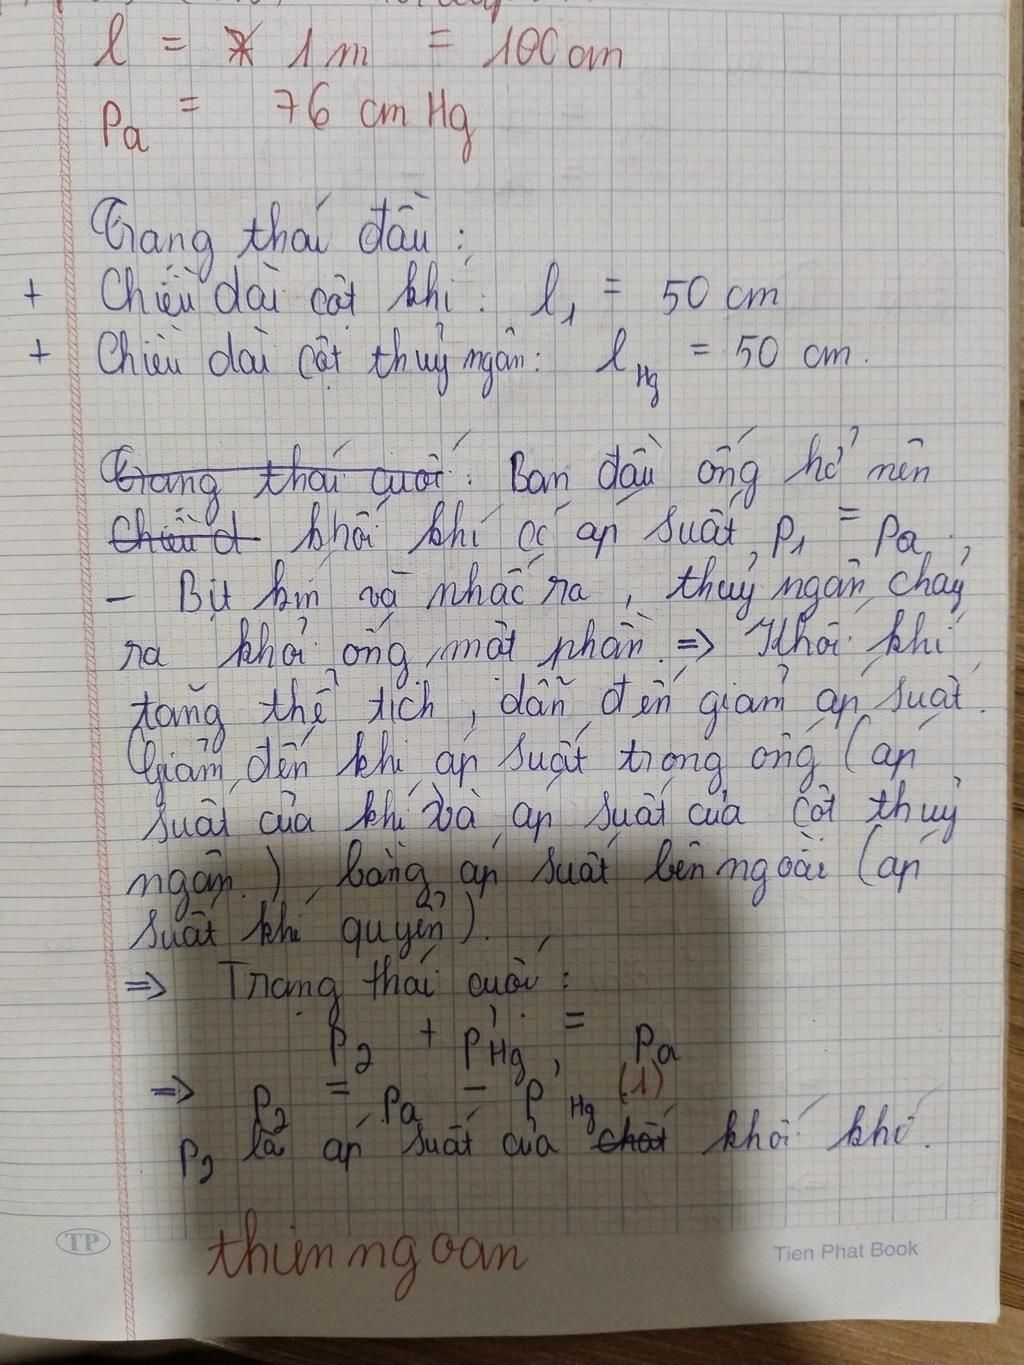 l = 1 m = 100 cm
Pa = 76 cm Hg
Trang thái đầu :
+ Chiều dài cột khí : l1 = 50 cm
+ Chiều dài cột thuỷ ngân : lHg = 50 cm .
Trang thái cuối : Ban đầu ống hở nên
Chiều d khối khí có áp suất P1 = Pa ,
- Bịt kín và nhấc ra , thuỷ ngân chảy
ra khỏi ống một phần => Khối khí
tăng thể tích , dẫn đến giảm áp suất .
Giảm đến khi áp suất trong ống ( áp
suất của khí và áp suất của cột thuỷ
ngân ) , bằng áp suất bên ngoài ( áp
suất khí quyển ) .
=> Trạng thái cuối :
P2 + P'Hg = Pa
=> P2 = Pa - P'Hg (1)
P2 là áp suất của chất khối khí .
thienngoan
TP
Tien Phat Book